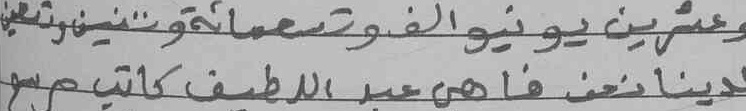 وعشرين يونيو الف وتسعمائة وتثنين وتسعين
لدينا نحن فاهي عبد اللطيف كاتب